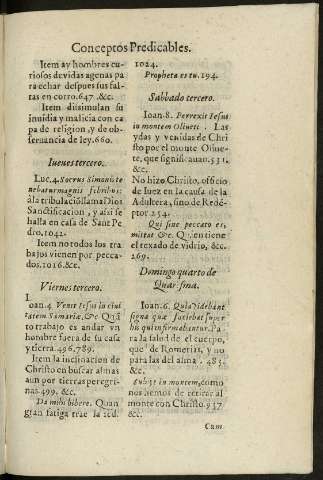 Conceptos Predicables.
Item ay hombres cu-
riosos de vidas agenas pa
ra echar despues sus fal-
tas en corro.647. &c.
Item dissimulan su
inuidia y malicia con ca
pa de religion, y de ob-
seruancia de ley.660.
Iueues tercero.
Luc.4. Socrus Simonis te
nebatur magnis febribus:
a la tribulació llama Dios
Sanctificacion, y assi se
halla en casa de Sant Pe
dro.1042.
Item no todos los tra
bajos vienen por pecca-
dos.1016.&c.
Viernes tercero.
Ioan.4 Venit Iesus in ciui
tatem Samariæ, &c Quã
to trabajo es andar vn
hombre fuera de su casa
y tierra.496.789.
Item la inclinacion de
Christo en buscar almas
aun por tierras peregri-
nas.499. &c.
Da mihi bibere. Quan
gran fatiga trae la sed.
1024.
Propheta es tu.194.
Sabbado tercero.
Ioan.8. Perrexit Iesus
in montem Oliueti. Las
ydas y venidas de Chri
sto por el monte Oliue-
te, que significauan.531.
&c.
No hizo Christo, officio
de Iuez en la causa de la
Adultera, sino de Redẽ-
ptor 254.
Qui sine peccato es,
mittat &c. Quien tiene
el texado de vidrio, &c.
269.
Domingo quarto de
Quaresma.
Ioan.6.
Pa
ra la salud de el cuerpo,
que de Romerias, y no
para las del alma. 483.
&c.
Subijt in montem, como
nos hemos de retirar al
monte con Christo.937
&c.
Cum